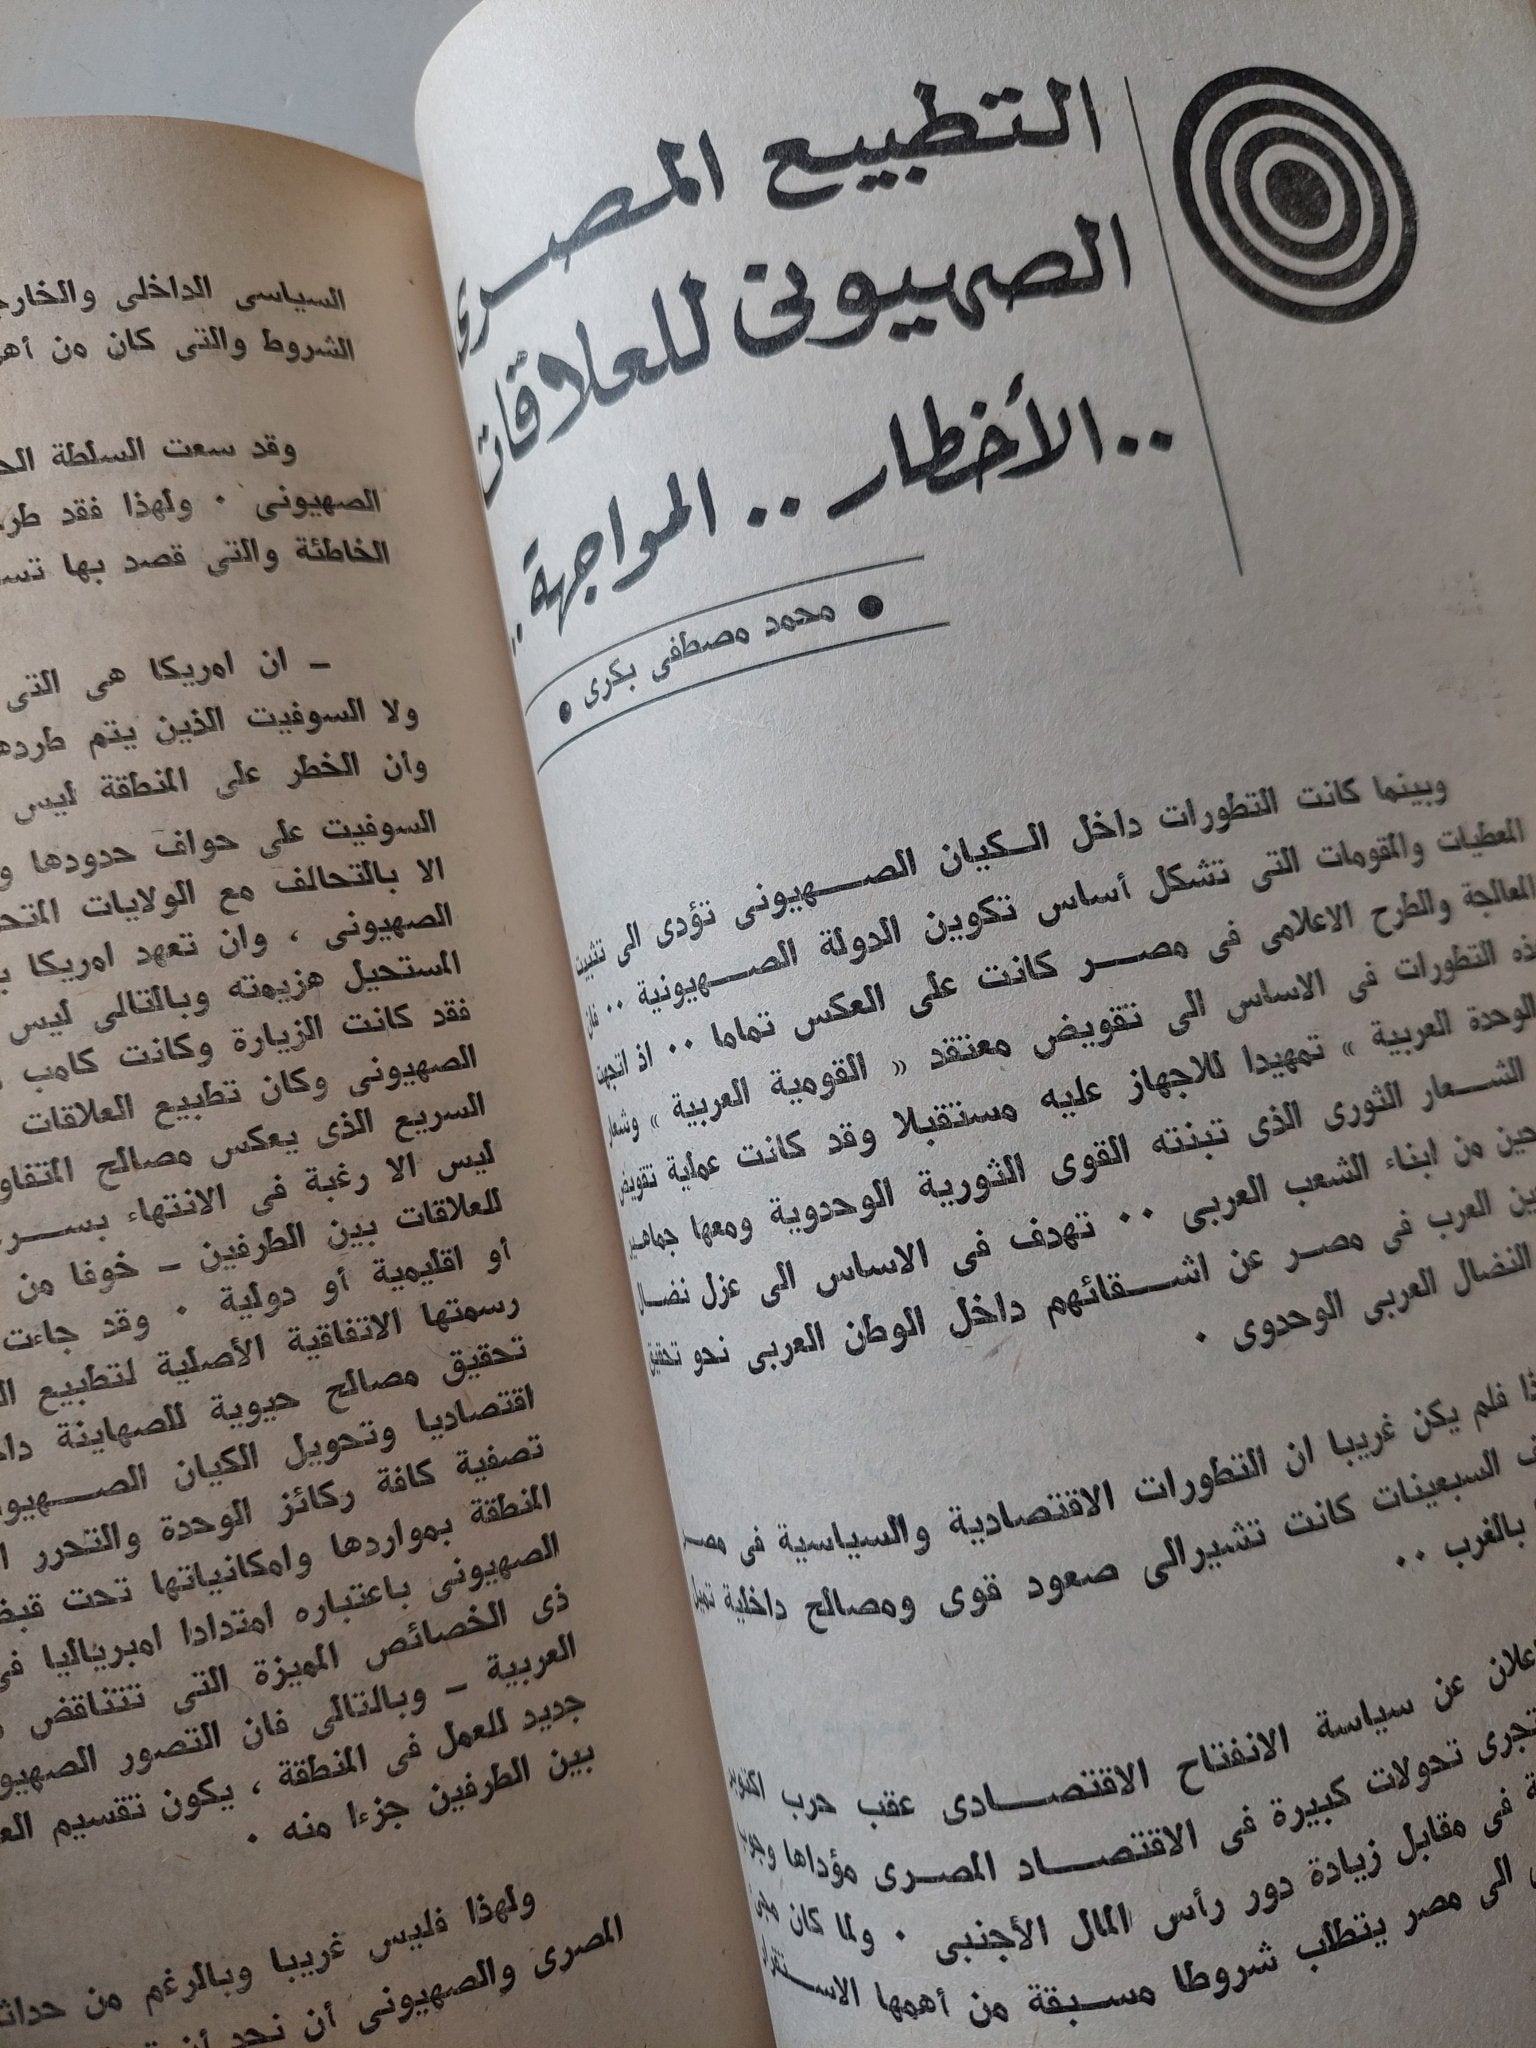 التطبيع المصرى
الصهيونى للعلاقات
.. الأخطار .. المواجهة ..
● محمد مصطفى بكرى ●
وبينما كانت التطورات داخل الكيان الصهيونى تؤدى الى تثبيت
المعطيات والمقومات التى تشكل أساس تكوين الدولة الصهيونية .. فان
المعالجة والطرح الاعلامى فى مصر كانت على العكس تماما .. اذ اتجهت
ذه التطورات فى الاساس الى تقويض معتقد « القومية العربية » وشعار
الوحدة العربية » تمهيدا للاجهاز عليه مستقبلا وقد كانت عملية تقويض
الشعار الثورى الذى تبنته القوى الثورية الوحدوية ومعها جماهير
حين من ابناء الشعب العربى .. تهدف فى الاساس الى عزل نضال
ين العرب فى مصر عن اشقائهم داخل الوطن العربى نحو تحقيق
النضال العربى الوحدوى .
ذا فلم يكن غريبا ان التطورات الاقتصادية والسياسية فى مصر
ف السبعينات كانت تشير الى صعود قوى ومصالح داخلية تميل
بالغرب ..
علان عن سياسة الانفتاح الاقتصادى عقب حرب اكتوبر
تجرى تحولات كبيرة فى الاقتصاد المصرى مؤداها وجوب
ة فى مقابل زيادة دور رأس المال الأجنبى . ولما كان مجىء
الى مصر يتطلب شروطا مسبقة من أهمها الاستقرار
السياسى الداخلى والخارج
الشروط والتى كان من أهم
وقد سعت السلطة الح
الصهيونى . ولهذا فقد طر
الخاطئة والتى قصد بها تس
– ان امريكا هى التى
ولا السوفيت الذين يتم طرده
وأن الخطر على المنطقة ليس
السوفيت على حواف حدودها و
الا بالتحالف مع الولايات المتح
الصهيونى ، وان تعهد امريكا ب
المستحيل هزيمته وبالتالى ليس
فقد كانت الزيارة وكانت كامب
الصهيونى وكان تطبيع العلاقات
السريع الذى يعكس مصالح المتفاو
ليس الا رغبة فى الانتهاء بسر
للعلاقات بين الطرفين – خوفا من
أو اقليمية أو دولية . وقد جاءت
رسمتها الاتفاقية الأصلية لتطبيع ال
تحقيق مصالح حيوية للصهاينة دا
اقتصاديا وتحويل الكيان الصهيو
تصفية كافة ركائز الوحدة والتحرر ا
المنطقة بمواردها وامكانياتها تحت قبض
الصهيونى باعتباره امتدادا امبرياليا فى
ذى الخصائص المميزة التى تتناقض
العربية – وبالتالى فان التصور الصهيو
جديد للعمل فى المنطقة ، يكون تقسيم الع
بين الطرفين جزءا منه .
ولهذا فليس غريبا وبالرغم من حداث
المصرى والصهيونى أن نجد أن